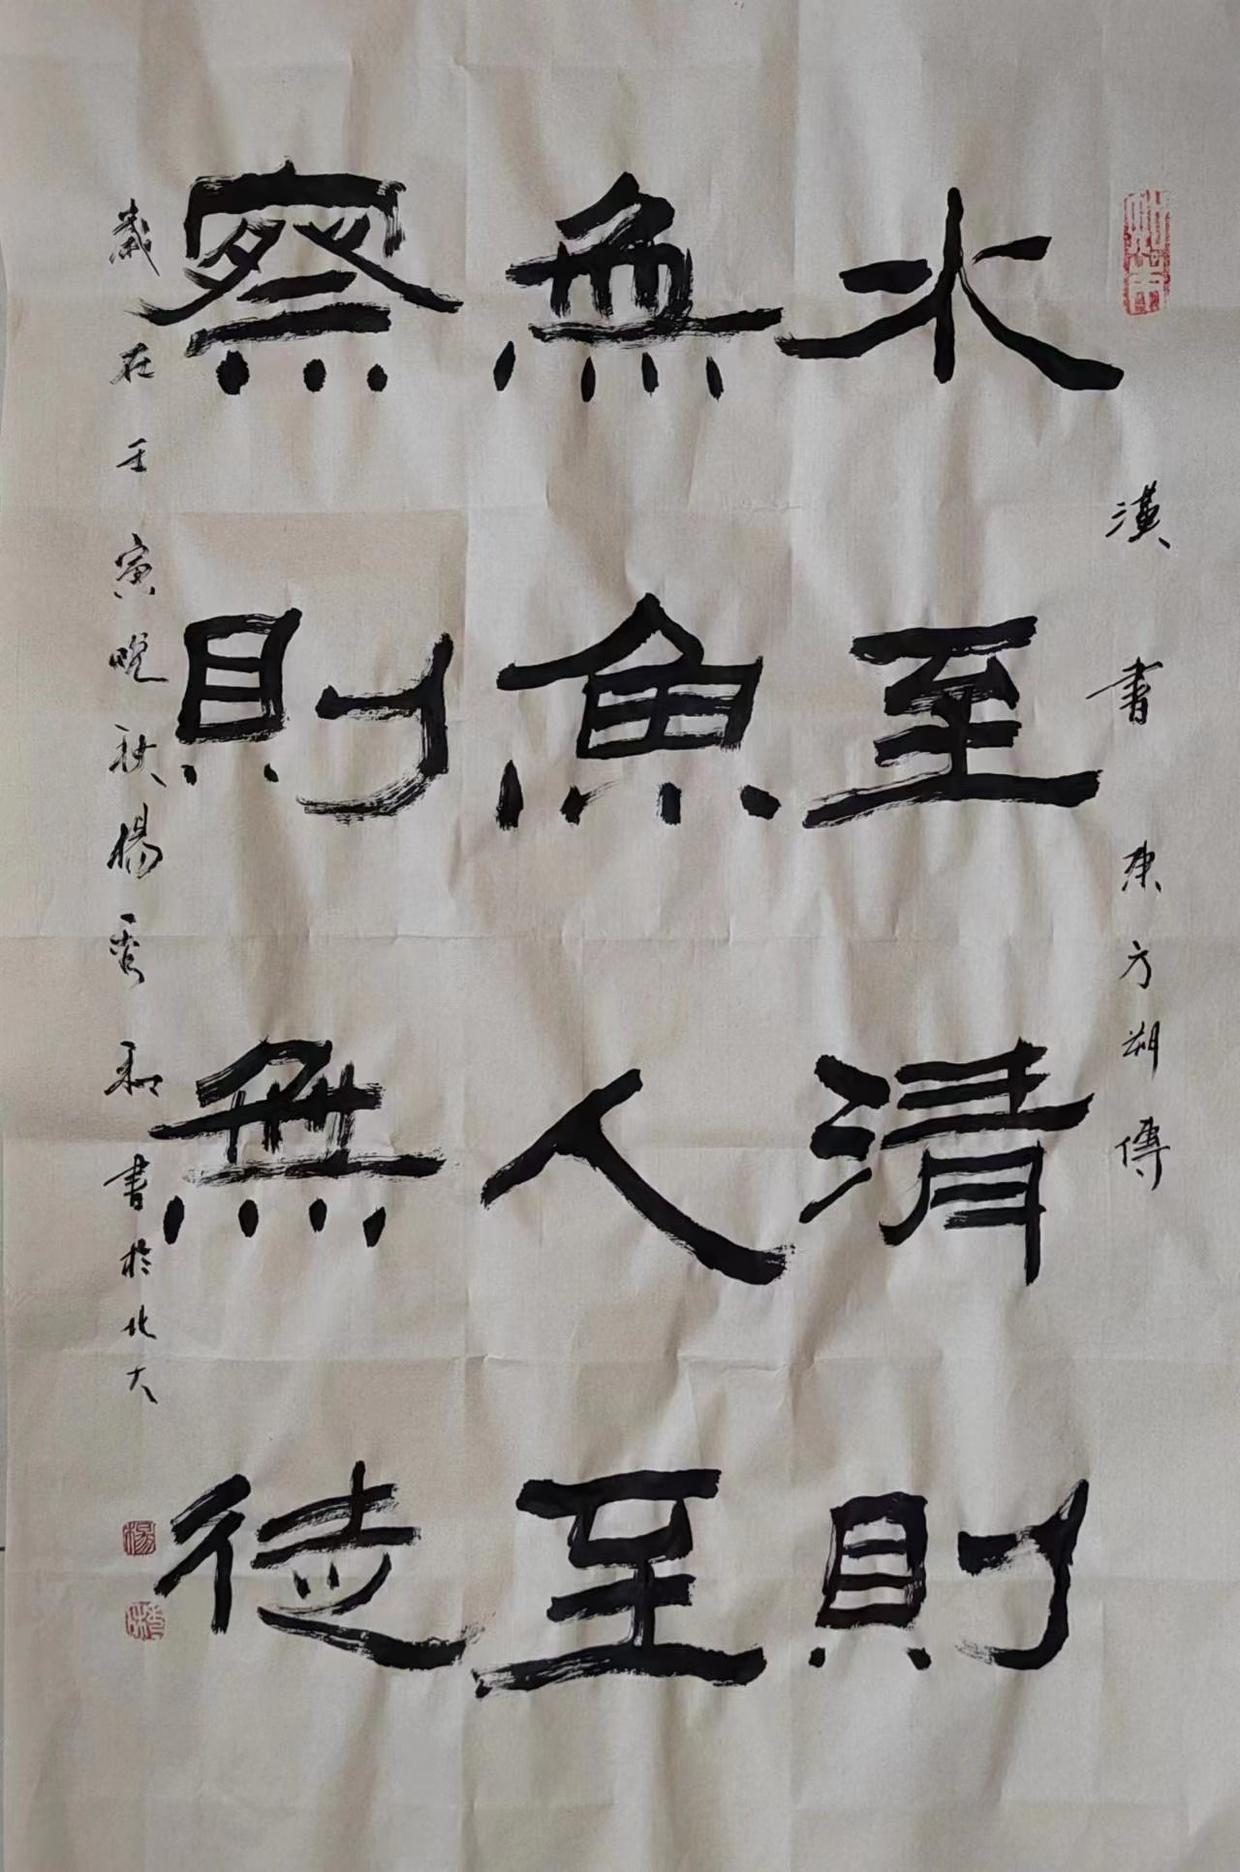 漢書東方朔傳
水至清則
無魚人至
察則無徒
歲在壬寅晚秋楊秀和書於北大
楊